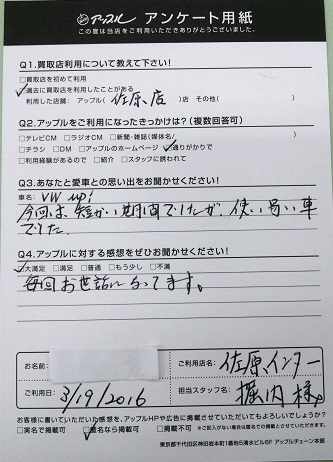 アップル アンケート用紙
この度は当店をご利用いただきありがとうございました。
Q1.買取店利用について教えて下さい!
□買取店を初めて利用
□過去に買取店を利用したことがある
利用した店舗: アップル( 佐原店 )店 その他( )
Q2.アップルをご利用になったきっかけは?(複数回答可)
□テレビCM □ラジオCM □新聞・雑誌(媒体名/ )
□チラシ □DM □アップルのホームページ □通りがかりで
□利用経験があるので □紹介 □スタッフに誘われて
Q3.あなたと愛車との思い出をお聞かせください!
車名: VW up!
今回は短かい期間でしたが、使い易い車
でした。
Q4.アップルに対する感想をぜひお聞かせください!
□大満足 □満足 □普通 □もう少し □不満
毎回お世話になってます。
お名前:
ご利用店名: 佐原インター
ご利用日: 3/19/2016
担当スタッフ名: 堀内様
お客様に書いていただいた感想を、アップルHPや広告に掲載させていただいてもよろしいでしょうか?
□実名で掲載可 □匿名なら掲載可 □掲載不可 ※ご記入がない場合は匿名での掲載とさせていただきます。
東京都千代田区神田岩本町1番地5清水ビル6F アップルチェーン本部